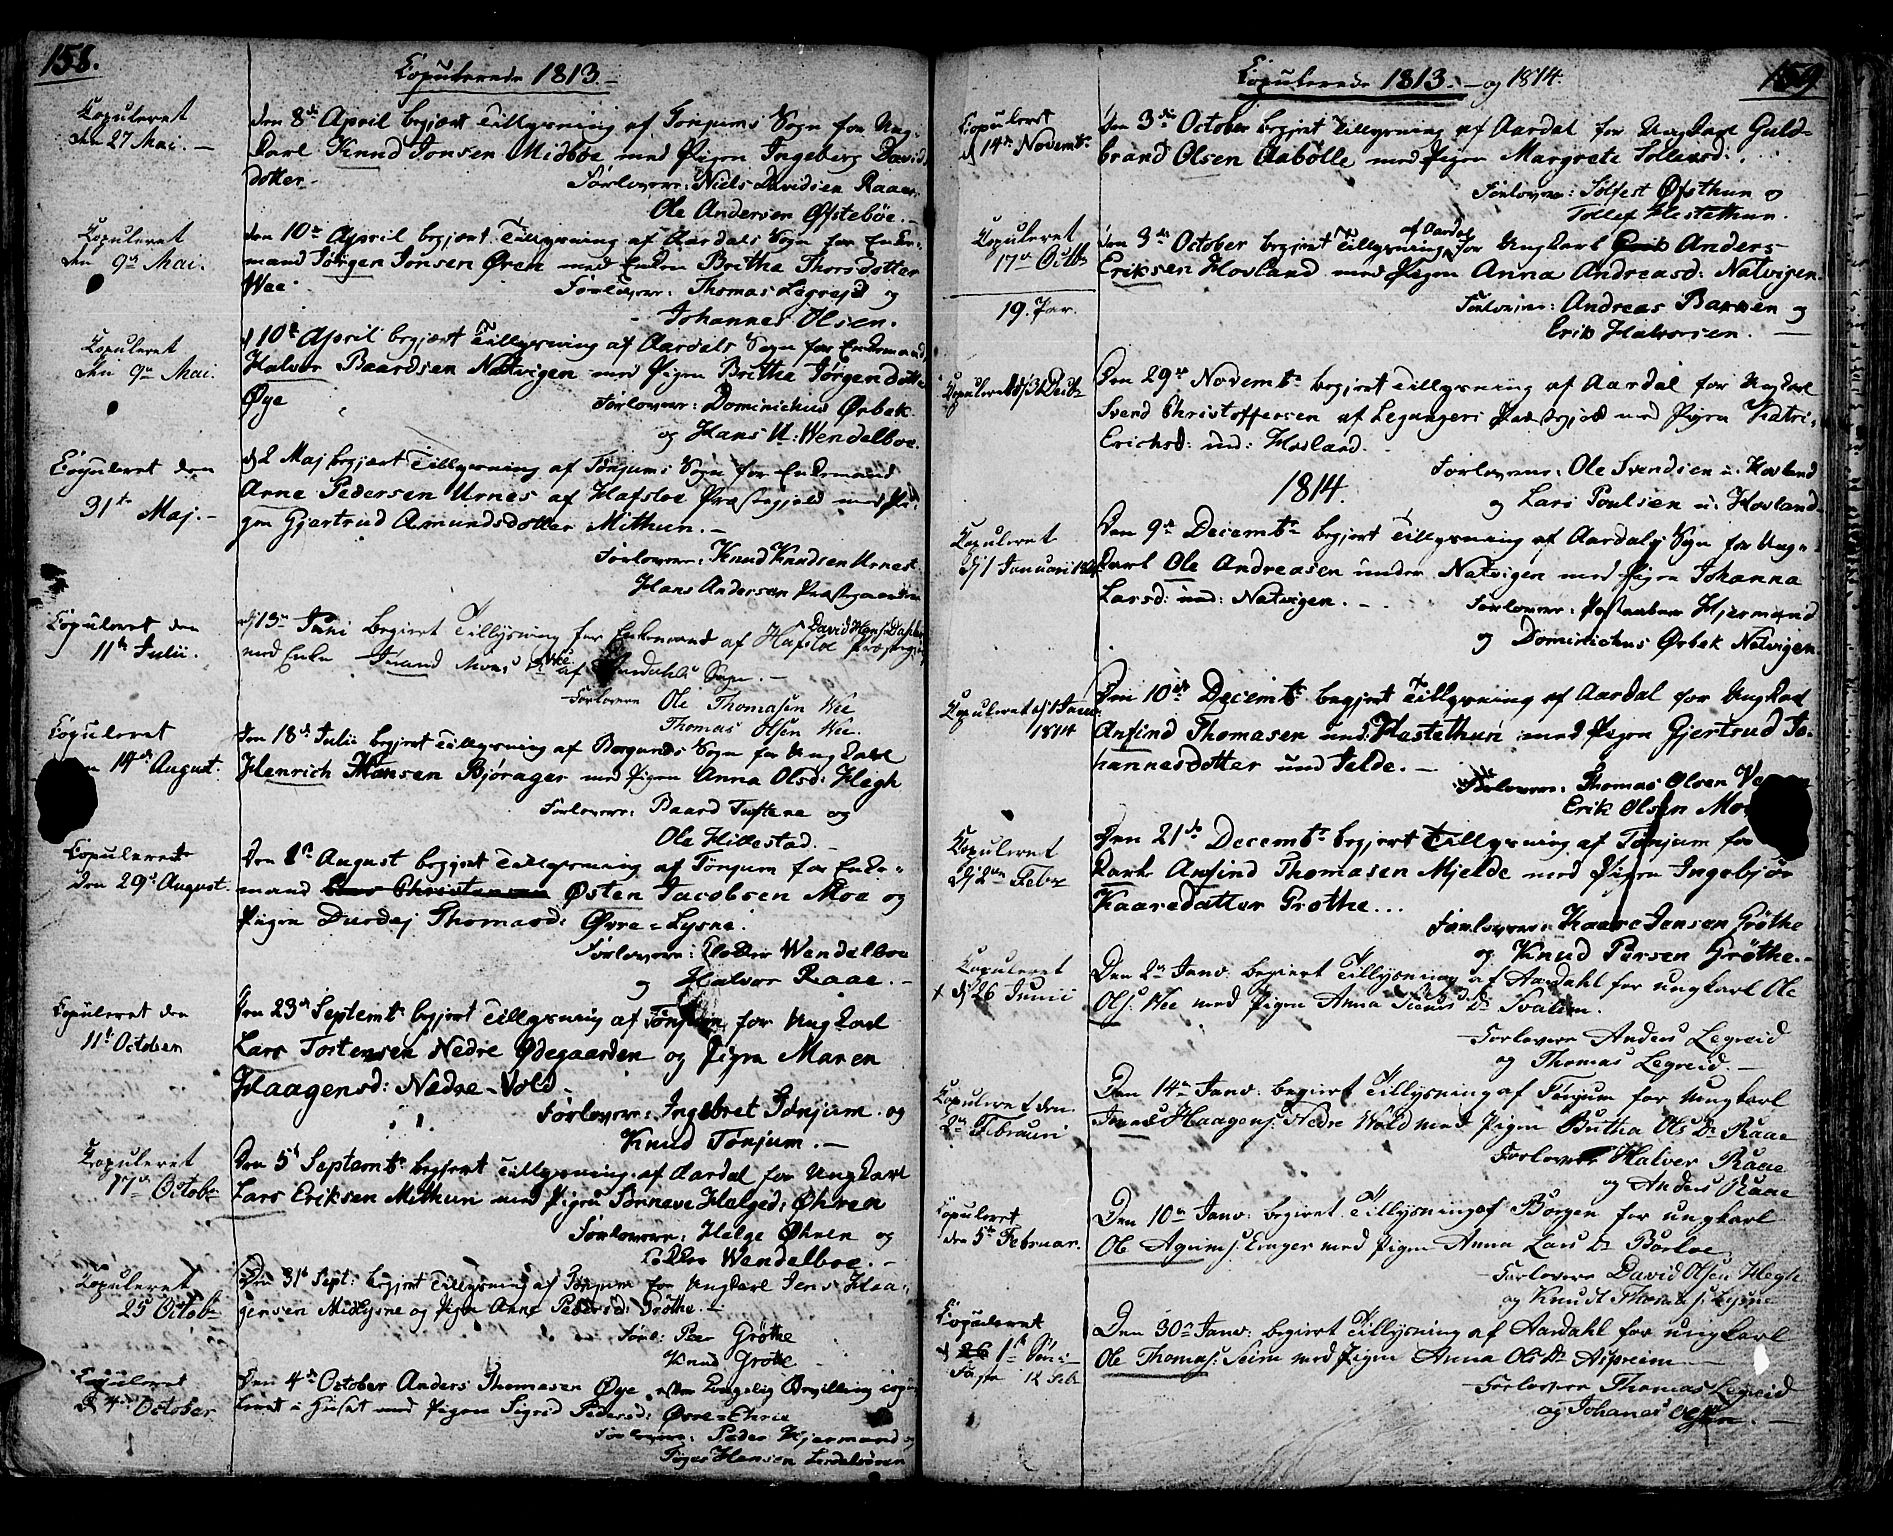 158.
Copulerede 1813.
Copuleret
den 27 Mai.
den 8de April begjært Tillysning af Tonjums Sogn for Ung-
karl Knud Jonsen Midboe med Pigen Ingeberg David
dotter.
Forlovere: Niels Davidsen Raae
Ole Andersen Øfstebøe.
Copuleret
den 9de Mai.
den 10de April begjært Tillysning af Aardals Sogn for Enke-
mand Jørgen Jonsen Øren med Enken Brithe Thorsdotter
Wee.
Forlovere: Thomas Legrejd og
Johannes Olsen.
Copuleret
den 9de Mai.
d 10de April begjært Tillysning af Aardals Sogn for Enkemand
Halvor Baardsen Natvigen med Pigen Britha Jørgensdotter
Øye
Forlovere: Dominichus Ørbek
og Hans U: Wendelboe.
Copuleret den
31te Maj.
d 2 Maj begjært Tillysning af Tønjums Sogn for Enkemand
Arne Pedersen Urnes af Hafsloe Præstegjeld med Pi-
gen Gjertrud Amundsdotter Mithun.
Forlovere: Knud Knudsen Urnes
Hans Andersen
Copuleret den
11te Julii.
d 13de Juni begiert Tillysning for Enkemand David Hans: af Hafsloe Præstegj:
med Enke Mons Dr Wee af Aardahls Sogn.
Forlovere Ole Thomasen Wee
Thomas Olsen Wee.
Copuleret
den 14de August.
Den 18de Julii begjert Tillysning af Borgunds Sogn for Ungkarl
Henrich Hansen Bjørager med Pigen Anna Olsd: Hegh
Forlovere: Baard Tuftene og
Ole Hillestad.
Copuleret
Den 29de August.
Den 1te August begjert Tillysning af Tønjum for Enke-
mand Østen Jacobsen Moe og
Pigen Durdej Thomasd: Øvre=Lysne.
Forlovere: Wendelboe
og Halvor Raae.
Copuleret den
11te October
Den 23de Septembr begjert Tillysning af Tønjum for Ungkarl
Lars Tostensen Nedre Ødegaarden og Pigen Maren
Haagensd: Nedre-Vold
Forlovere: Ingebret Tønjum og
Knud Tønjum.
Copuleret
17de Octobr
Den 5te Septembr begjert Tillysning af Aardal for Ungkarl
Lars Eriksen Mithun med Pigen Sønneve Helged: Øhren
Forlovere: Helge Øhren og
Wendelboe.
Copuleret
25 Octobr
Den 31te Sept: begjert Tillysning af Tønjum for Ungkarl Jens Haa-
gensen Midlysne og Pigen Anne Pedersd: Grøthe.
Forl: Peer Grøthe
Knud Grøthe
Copuleret
d 4de October.
Den 4de October Anders Thomasen Øye efter Kongelig Bevilling copu-
leret i Huset med Pigen Sigrid Pedersd: Øvre=Ehrie
Forlovere: Peder Hjermand og
Hansen Lerdalsøren
159
Copulerede 1813. og 1814.
Copuleret
d 14de Novembr
Den 3de October begjert Tillysning af Aardal for Ungkarl Guld-
brand Olsen Aabølle med Pigen Margrete Sollensd:
Forlovere: Solfest Øfsthun og
Tollef Hestethun.
Copuleret
17de Octbr
19. Par.
den 3de October begjert Tillysning af Aardal for Ungkarl Anders
Eriksen Hovland med Pigen Anna Andreasd: Natvigen.
Forlovere: Andreas Barnen og
Erik Halvorsen.
Copuleret d 31 Decbr
Den 29de Novembr begjert Tillysning af Aardal for Ungkarl
Svend Christoffersen af Leganger Præstegjeld med Pigen Katri
Erichsd: und: Hovland.
Forlovere: Ole Svendsen u. Hovland
og Lars Poulsen u: Hovland
1814.
Copuleret
d 1 Januari 1814
Den 9de Decembr begjert Tillysning af Aardals Sogn for Ung-
karl Ole Andreasen under Natvigen med Pigen Johanna
Larsd: und: Natvigen.
Forlovere: Hjermand
og Dominichus Ørbek Natvigen
Copuleret d 1 Janv:
1814
Den 10de Decembr begjert Tillysning af Aardal for Ungkarl
Anfind Thomasen und: Hestethun med Pigen Gjertrud Jo-
hannesdotter und Selde.
Forlovere: Thomas Olsen
Erik Olsen Moe
Copuleret
d 2den Febr
Den 21de Decembr begjert Tillysning af Tønjum for
karl Anfind Thomasen Mjelde med Pigen Ingebjør
Kaaredatter Grothe...
Forlovere: Kaare Jensen Grøthe
og Knud Persen Grøthe.
Copuleret
d 26 Junii
Den 2de Janv. begiert Tillysning af Aardahl for ungkarl Ole
Ols: Wee med Pigen Anna Dr Svalem.
Forlovere Anders Legreid
og Thomas Legreid.
Copuleret den
2de Februari
Den 14de Janv: begiert Tillysning af Tønjum for Ungkarl
Haagens: Nedre Wold med Pigen Britha Ols Dr Raae
Forlovere Halver Raae
og Anders Raae
Copuleret
den 5te Februar.
Den 10de Janv: begiert Tillysning af Borgen for ungkarl
Ole med Pigen Anna Lars Dr Borloe.
Forlovere David Olsen Hegh
og Knud Thomas: Lysne
Copuleret
1te
12 Feb.
Den 30de Janv: begiert Tillysning af Aardahl for ungkarl
Ole Thomas: Seim med Pigen Anna Ols Dr Aspreim
Forlovere Thomas Legreid
og Johanes Olsen.